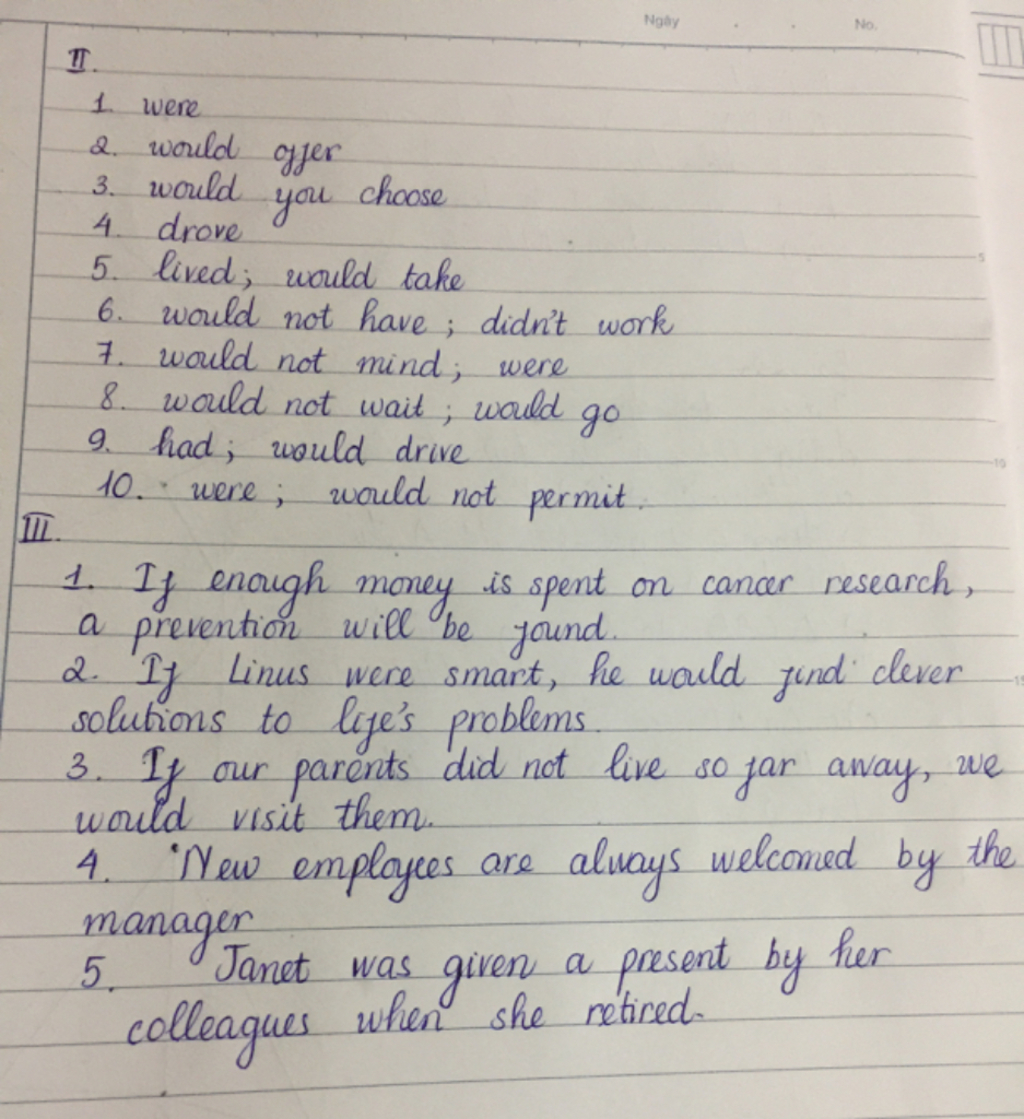 Ngày . . No.
II.
1. were
2. would offer
3. would you choose
4. drove
5. lived; would take
6. would not have; didn't work
7. would not mind; were
8. would not wait; would go
9. had; would drive
10. were; would not permit.
III.
1. If enough money is spent on cancer research,
a prevention will be found.
2. If Linus were smart, he would find clever
solutions to life's problems.
3. If our parents did not live so far away, we
would visit them.
4. New employees are always welcomed by the
manager
5. Janet was given a present by her
colleagues when she retired.
5
10
15